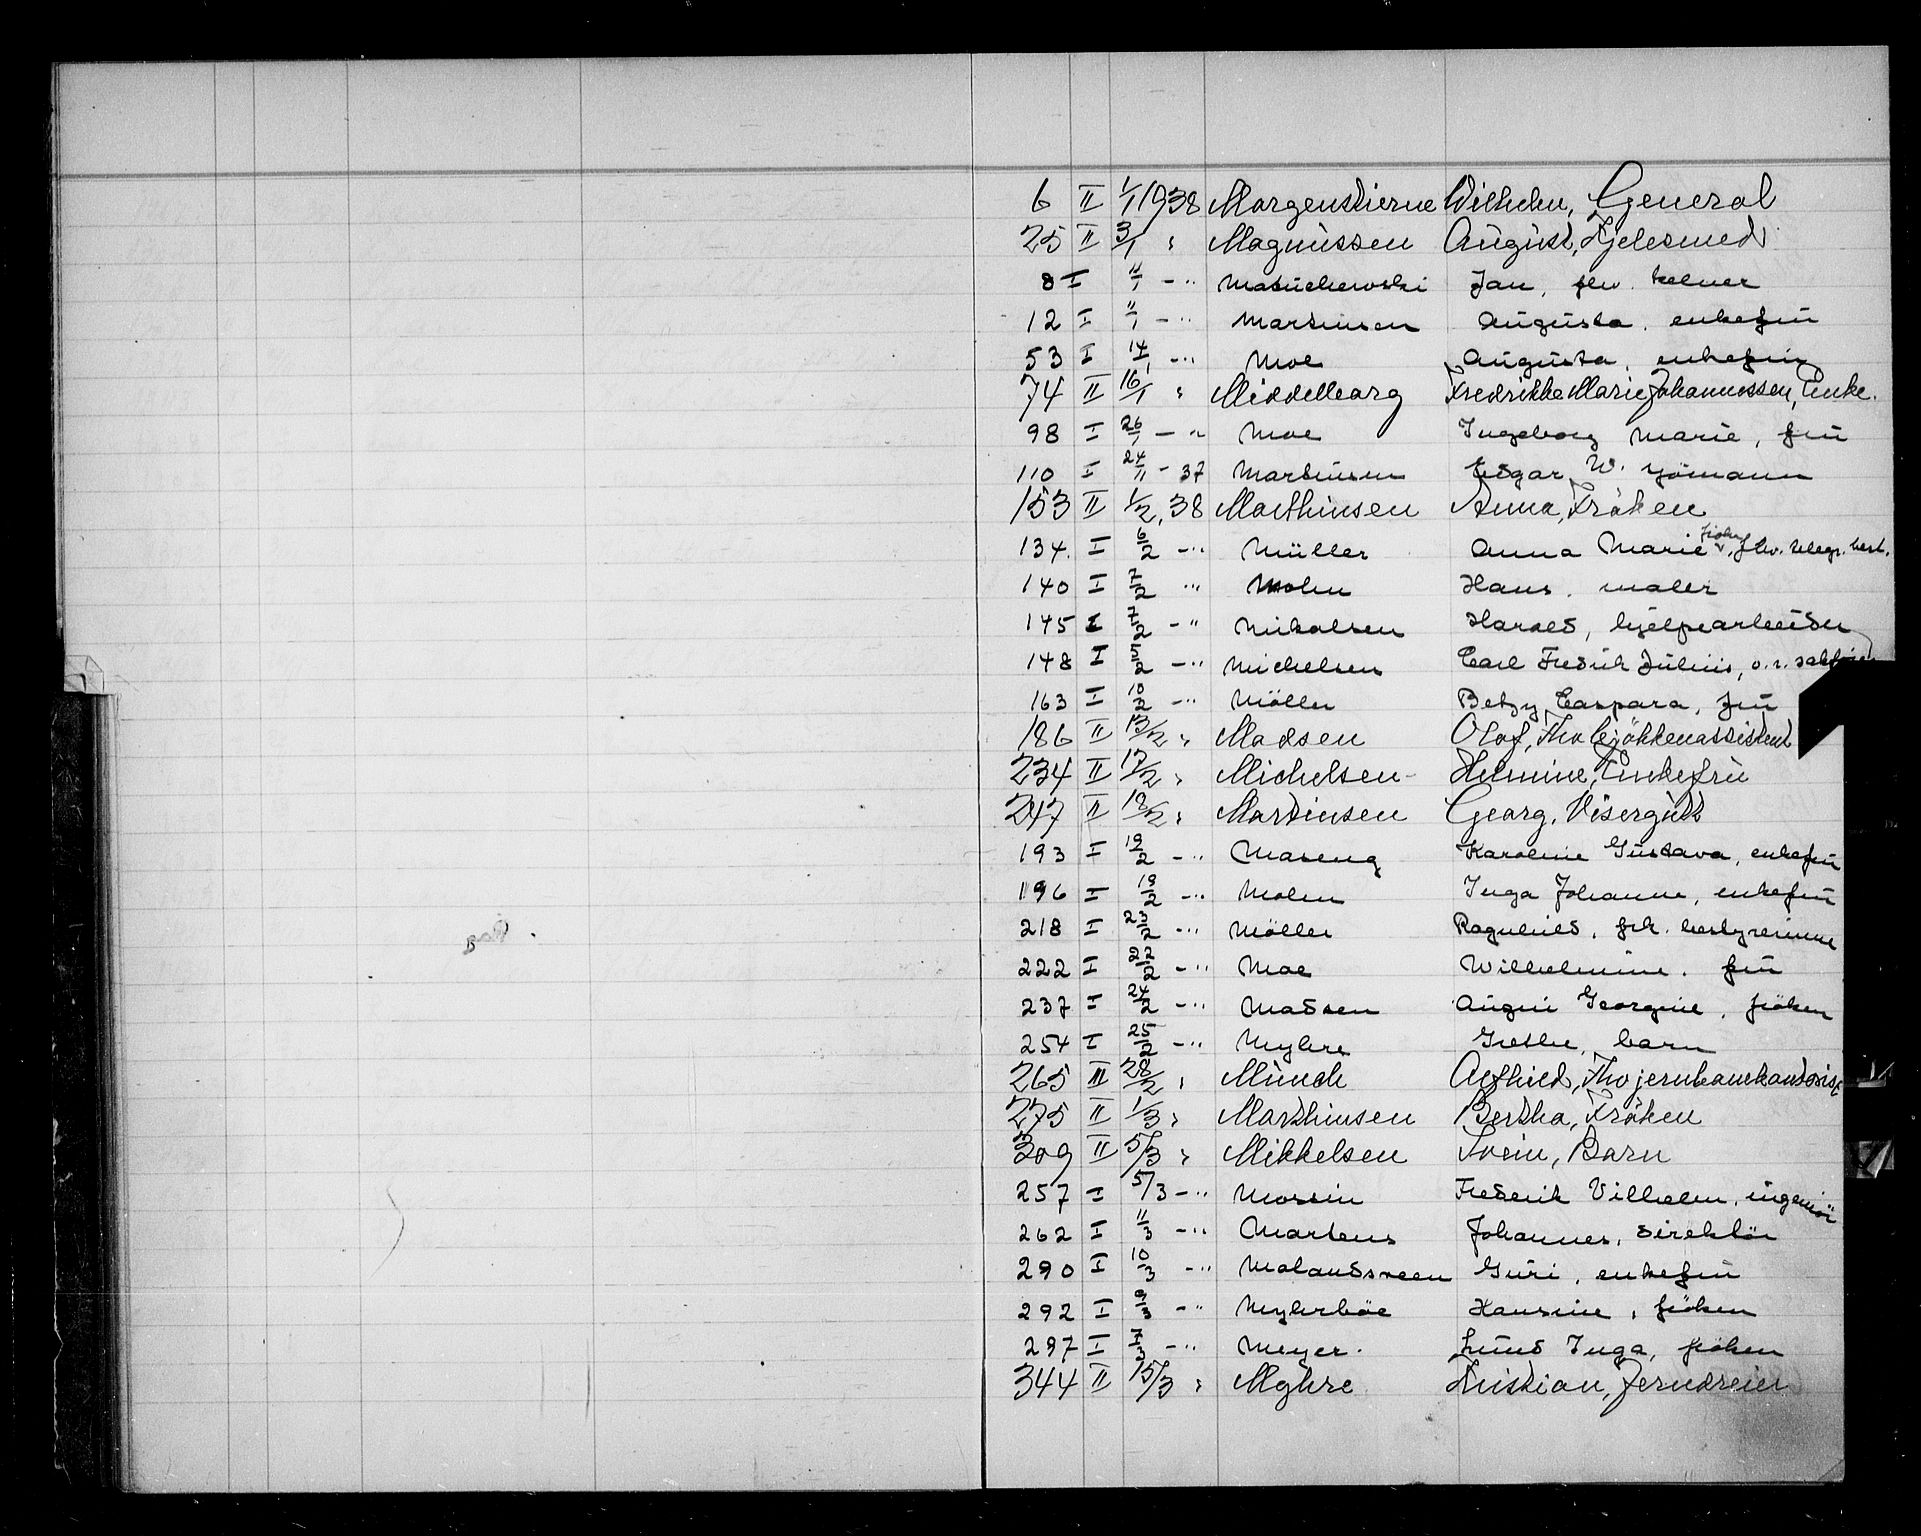 6 II 1/1 1938 Morgenstierne Wilhelm, General
25 II 3/1 " Magnussen August, Kjelesmed
8 I 11/1 - " Matuchewski Jan, fhv. kelner
12 I 11/1 - " Martinsen Augusta, enkefru
53 I 14/1 - " Moe Augusta, enkefru
74 II 16/1 " Middelborg Fredrikke Marie Johannessen, Enke.
98 I 26/1 - " Moe Ingeborg Marie, fru
110 I 24/11 - 37 Martinsen Edgar W. sjömann
153 II 1/2, 38 Marthinsen Anna, Fröken
134. I 6/2 - " Müller Anna Marie, fröken, fhv. telegr. best.
140 I 7/2 " Mohn Hans, maler
145 I 7/2 - " Mikalsen Harald, hjelpearbeider
148 I 5/2 - " Michelsen Carl Fredrik Julius, o.r. sakförer
163 I 10/2 - " Möller Betzy Caspara, fru
186 II 13/2 " Madsen Olaf, Fhv kjökkenassistent
234 II 17/2 " Michelsen - Helmine, Enkefru
247 II 18/2 " Martinsen Georg, Visergutt
193 I 19/2 - " Maseng Karoline Gustava, enkefru
196 I 19/2 - " Molen Inga Johanne, enkefru
218 I 23/2 - " Möller Ragnhild, frk. bestyrerinne
222 I 22/2 - " Moe Wilhelmine, fru
237 I 24/2 - " Madsen Augni Georgine, fröken
254 I 25/2 - " Myhre Grethe, barn
265 II 28/2 " Münch Alfhild, Fhv jernbanekontorist
275 II 1/3 " Marthinsen Bertha, Fröken
309 II 5/3 " Mikkelsen Svein, Barn
257 I 5/3 - " Morsin Frederik Vilhelm, ingeniör
262 I 11/3 - " Martens Johannes, direktör
290 I 10/3 - " Molandsveen Guri, enkefru
292 I 9/3 - " Myhrböe Hansine, fröken
297 I 7/3 - " Meyer. Lund Inga, fröken
344 II 15/3 " Myhre Kristian, Jerndreier